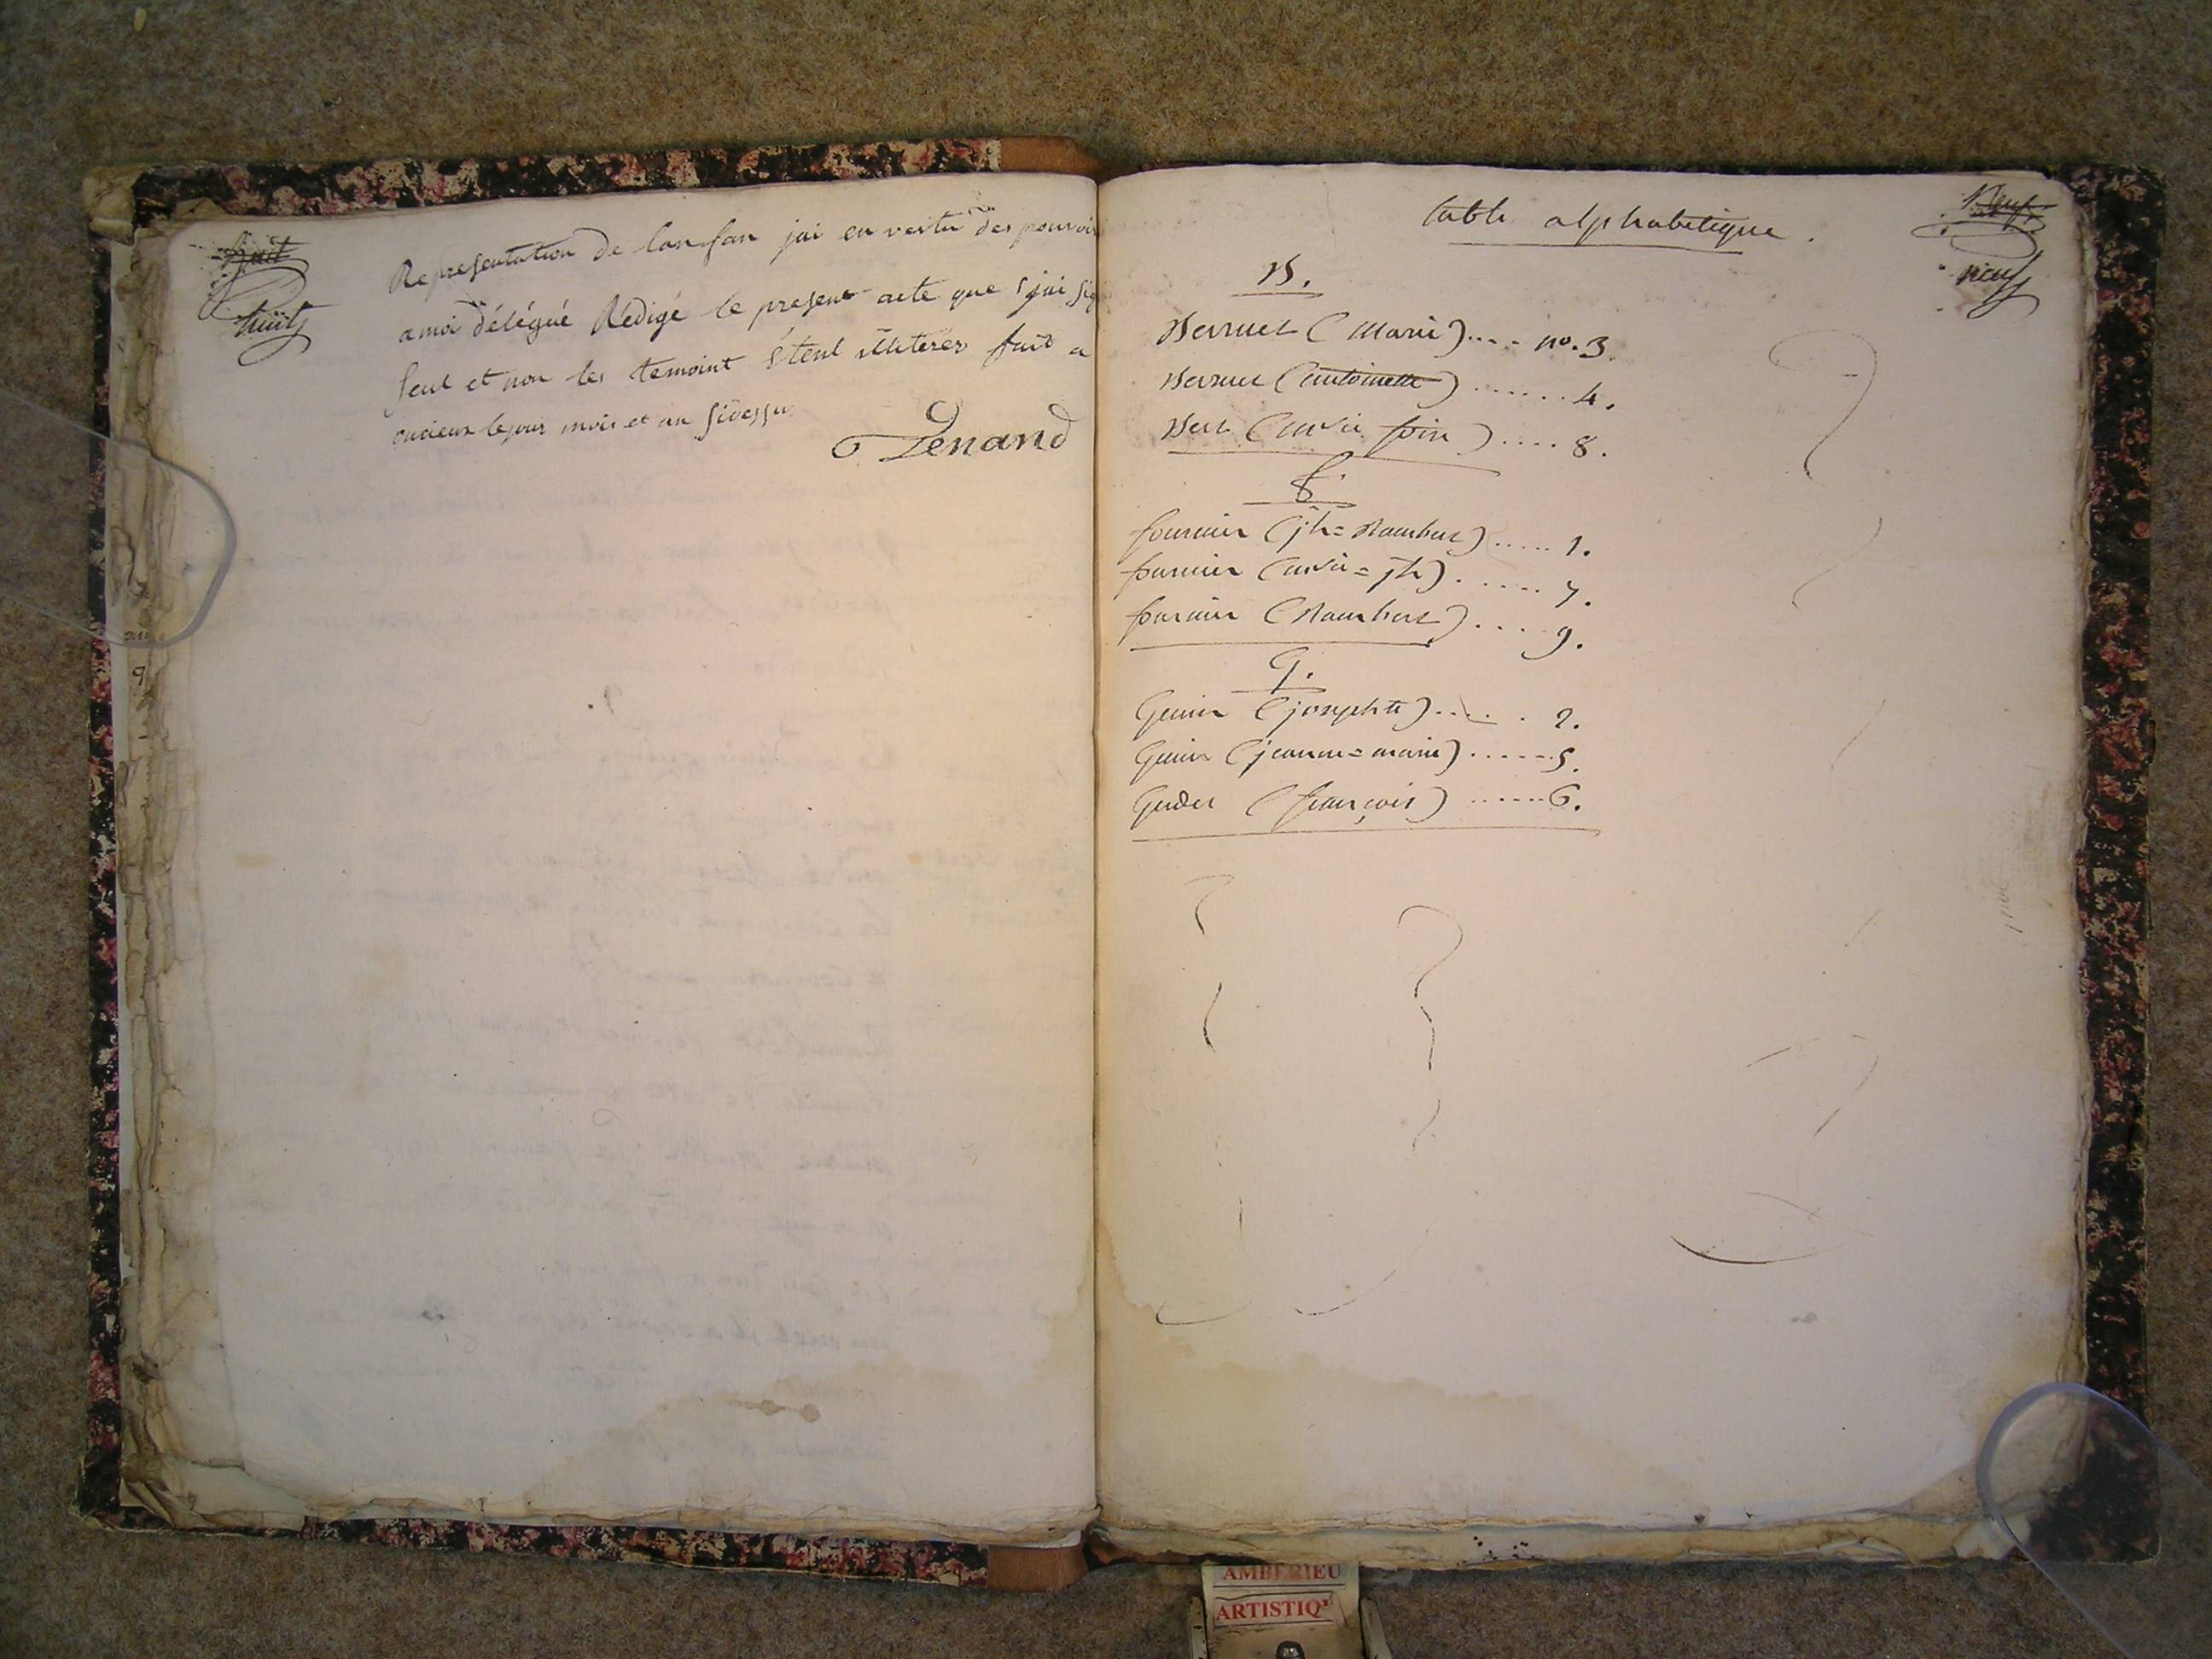 huit
huit
Representation de lanfan jai en vertu des pouvoir
a moi délégué Rédigé le present acte que jai sig
seul et non les temoint étent illiterer fait a
oncieux le jour mois et an sidessu
Penand
Neuf
neuf
table alphabetique.
B.
Berruet (marie).... no. 3.
Berruet (antoinette) ...... 4.
(marie) .... 8.
f.
fournier (jh = Rambert) ..... 1.
fournier (marie = jh) ..... 7.
fournier (Rambert) .... 9.
G.
Genin (josephte) ..... 2.
Genin (jeanne = marie) ...... 5.
Guder (françois) ...... 6.
9
AMBERIEU
ARTISTIQ